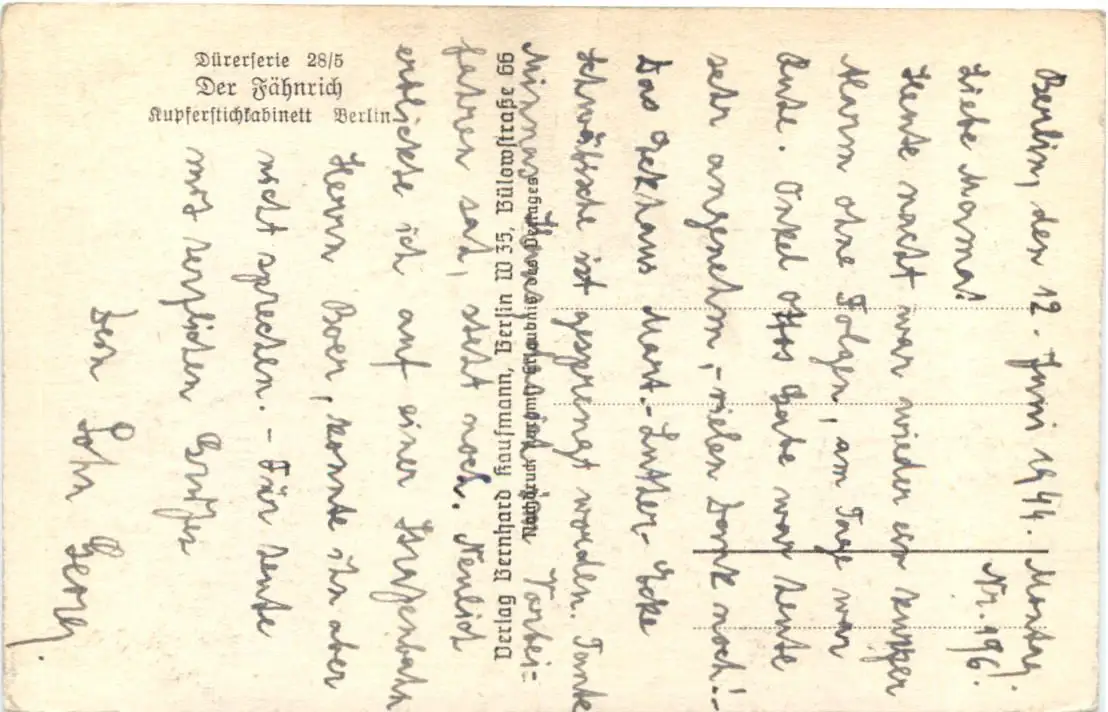 Dürerserie 28/5
Der Fähnrich
Kupferstichkabinett Berlin
Verlag Bernhard Kaufmann, Berlin W 35, Bülowstraße 66
Nachdruck nur mit Erlaubnis des Verlages
Berlin, den 12. Juni 1944. Montag.
Nr. 196.
Liebe Mama!
Heute nacht war wieder ein kurzer
Alarm ohne Folgen, am Tage war
Ruhe. Onkel Ottos Torte war heute
sehr angenehm, - vielen Dank noch! -
Das Eckhaus Mart.-Luther-Ecke
Schwäbische ist gesprengt worden. Tante
vorbei=
fahren sah, steht noch. Neulich
erblickte ich auf einer Straßenbahn
Herrn Boer, konnte ihn aber
nicht sprechen. - Für heute
nur herzlichen Grüßen
Dein Sohn Georg.